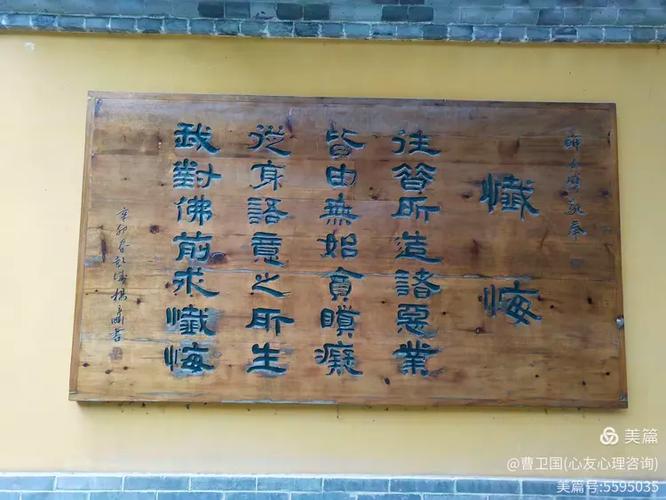 懺悔
往昔所造諸惡業
皆由無始貪瞋癡
從身語意之所生
我對佛前求懺悔
美篇
@曹卫国(心友心理咨询)
美篇号:5595035